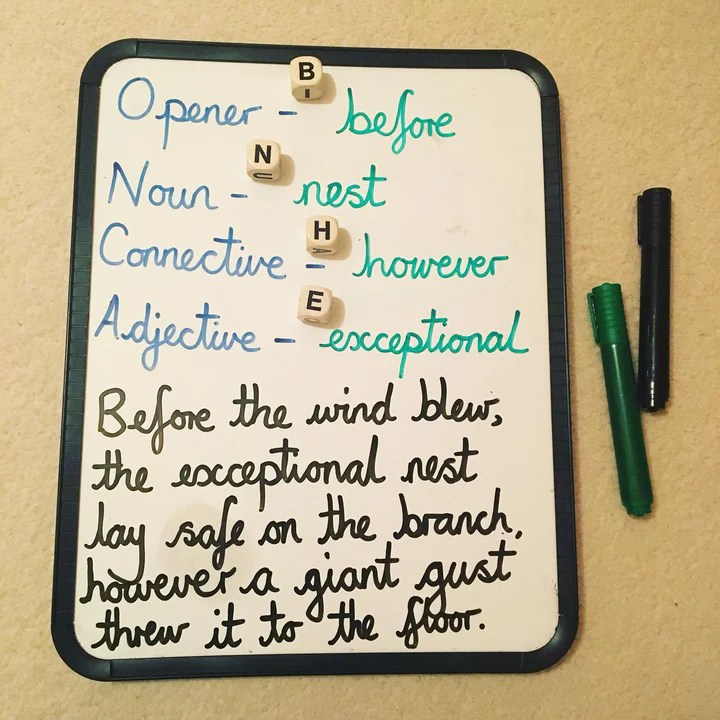 B
Opener - before
N
Noun - nest
H
Connective - however
E
Adjective - exceptional
Before the wind blew,
the exceptional nest
lay safe on the branch,
however a giant gust
threw it to the floor.